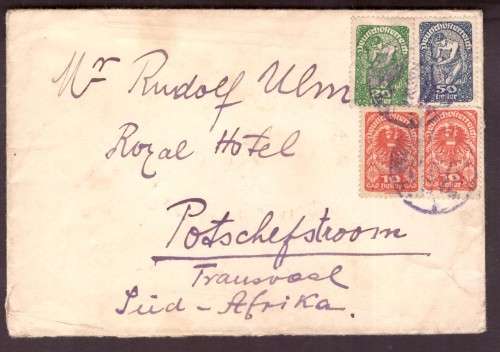 Mr Rudolf Ulm
Royal Hotel
Potschefstroom
Transvaal
Süd-Afrika.
Deutschösterreich
Deutschösterreich
50
Heller
10
Heller
10
Heller